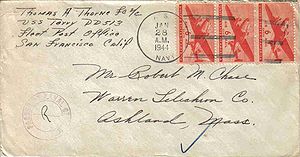 Thomas H Thorne F2/c
USS Terry DD513
Fleet Post Office
San Francisco Calif
JAN
28
A.M.
1944
NAVY
Mr. Robert M. Chase
Warren Telechron Co.
Ashland, Mass.
R